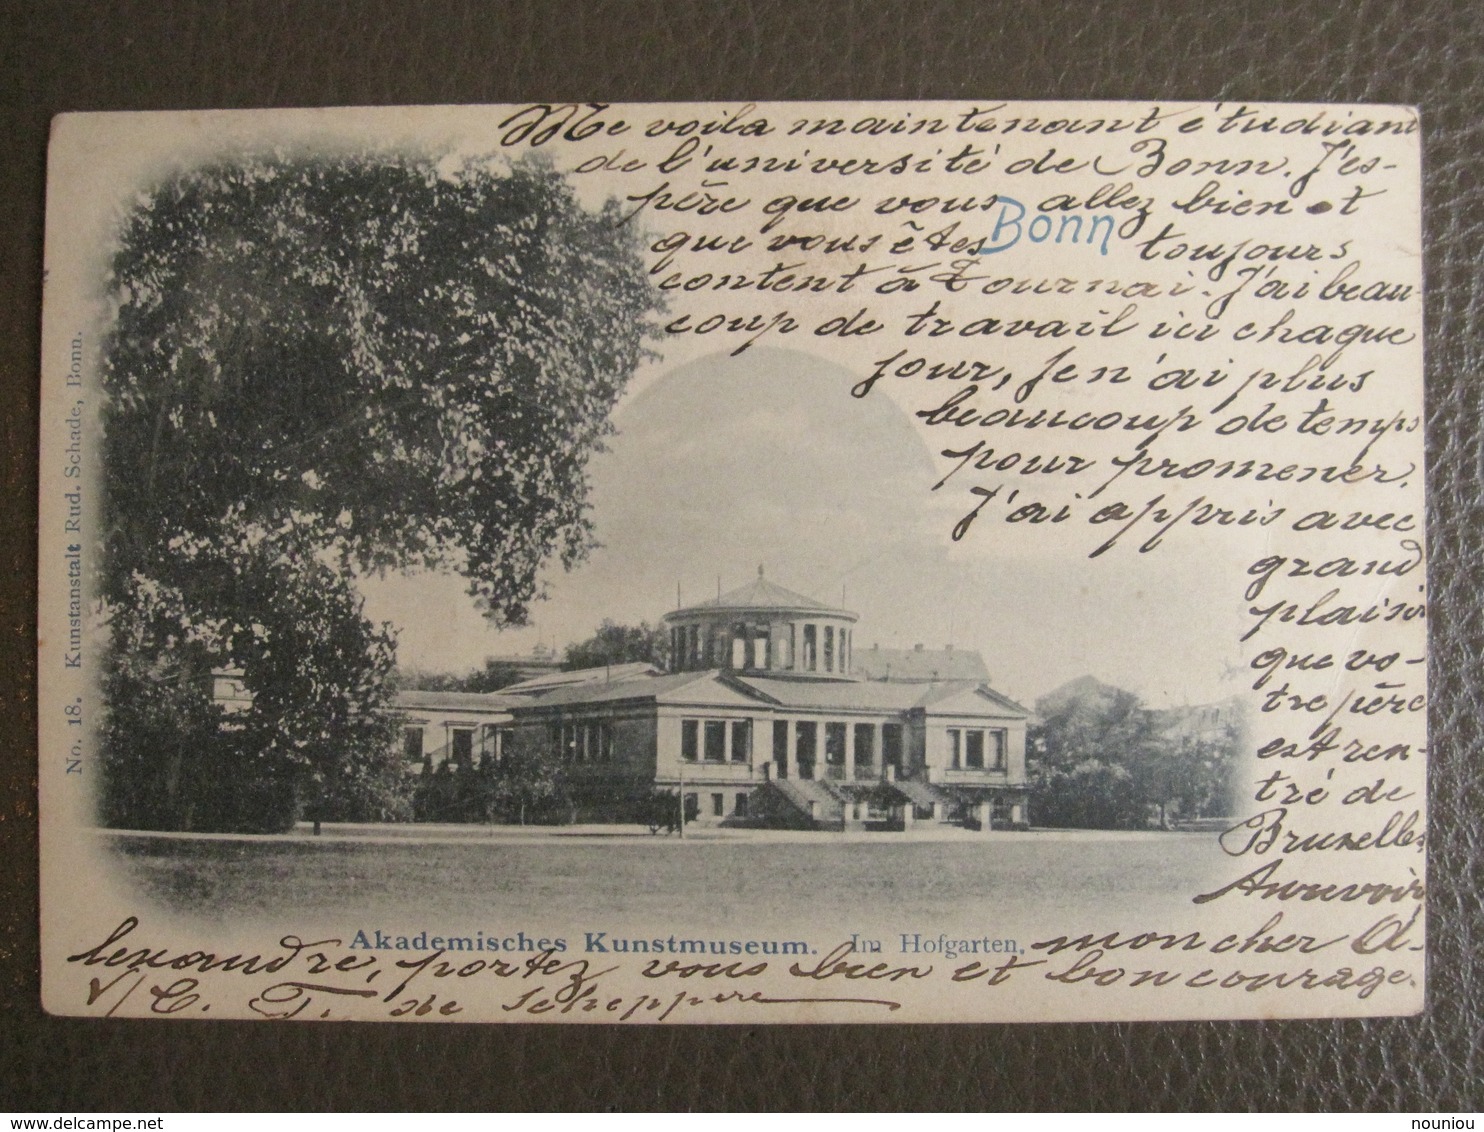 Me voila maintenant étudiant
de l'université de Bonn. J'es-
père que vous allez bien et
Bonn
que vous êtes toujours
content à Tournai. J'ai beau-
coup de travail ici chaque
jour, Je n'ai plus
beaucoup de temps
pour promener.
J'ai appris avec
grand
plaisir
que vo-
tre père
est ren-
tré de
Bruxelles.
Aurevoir
mon cher A-
lexandre, portez vous bien et bon courage.
T. de Scheppere
Akademisches Kunstmuseum. Im Hofgarten.
No. 18. Kunstanstalt Rud. Schade, Bonn.
nouniou